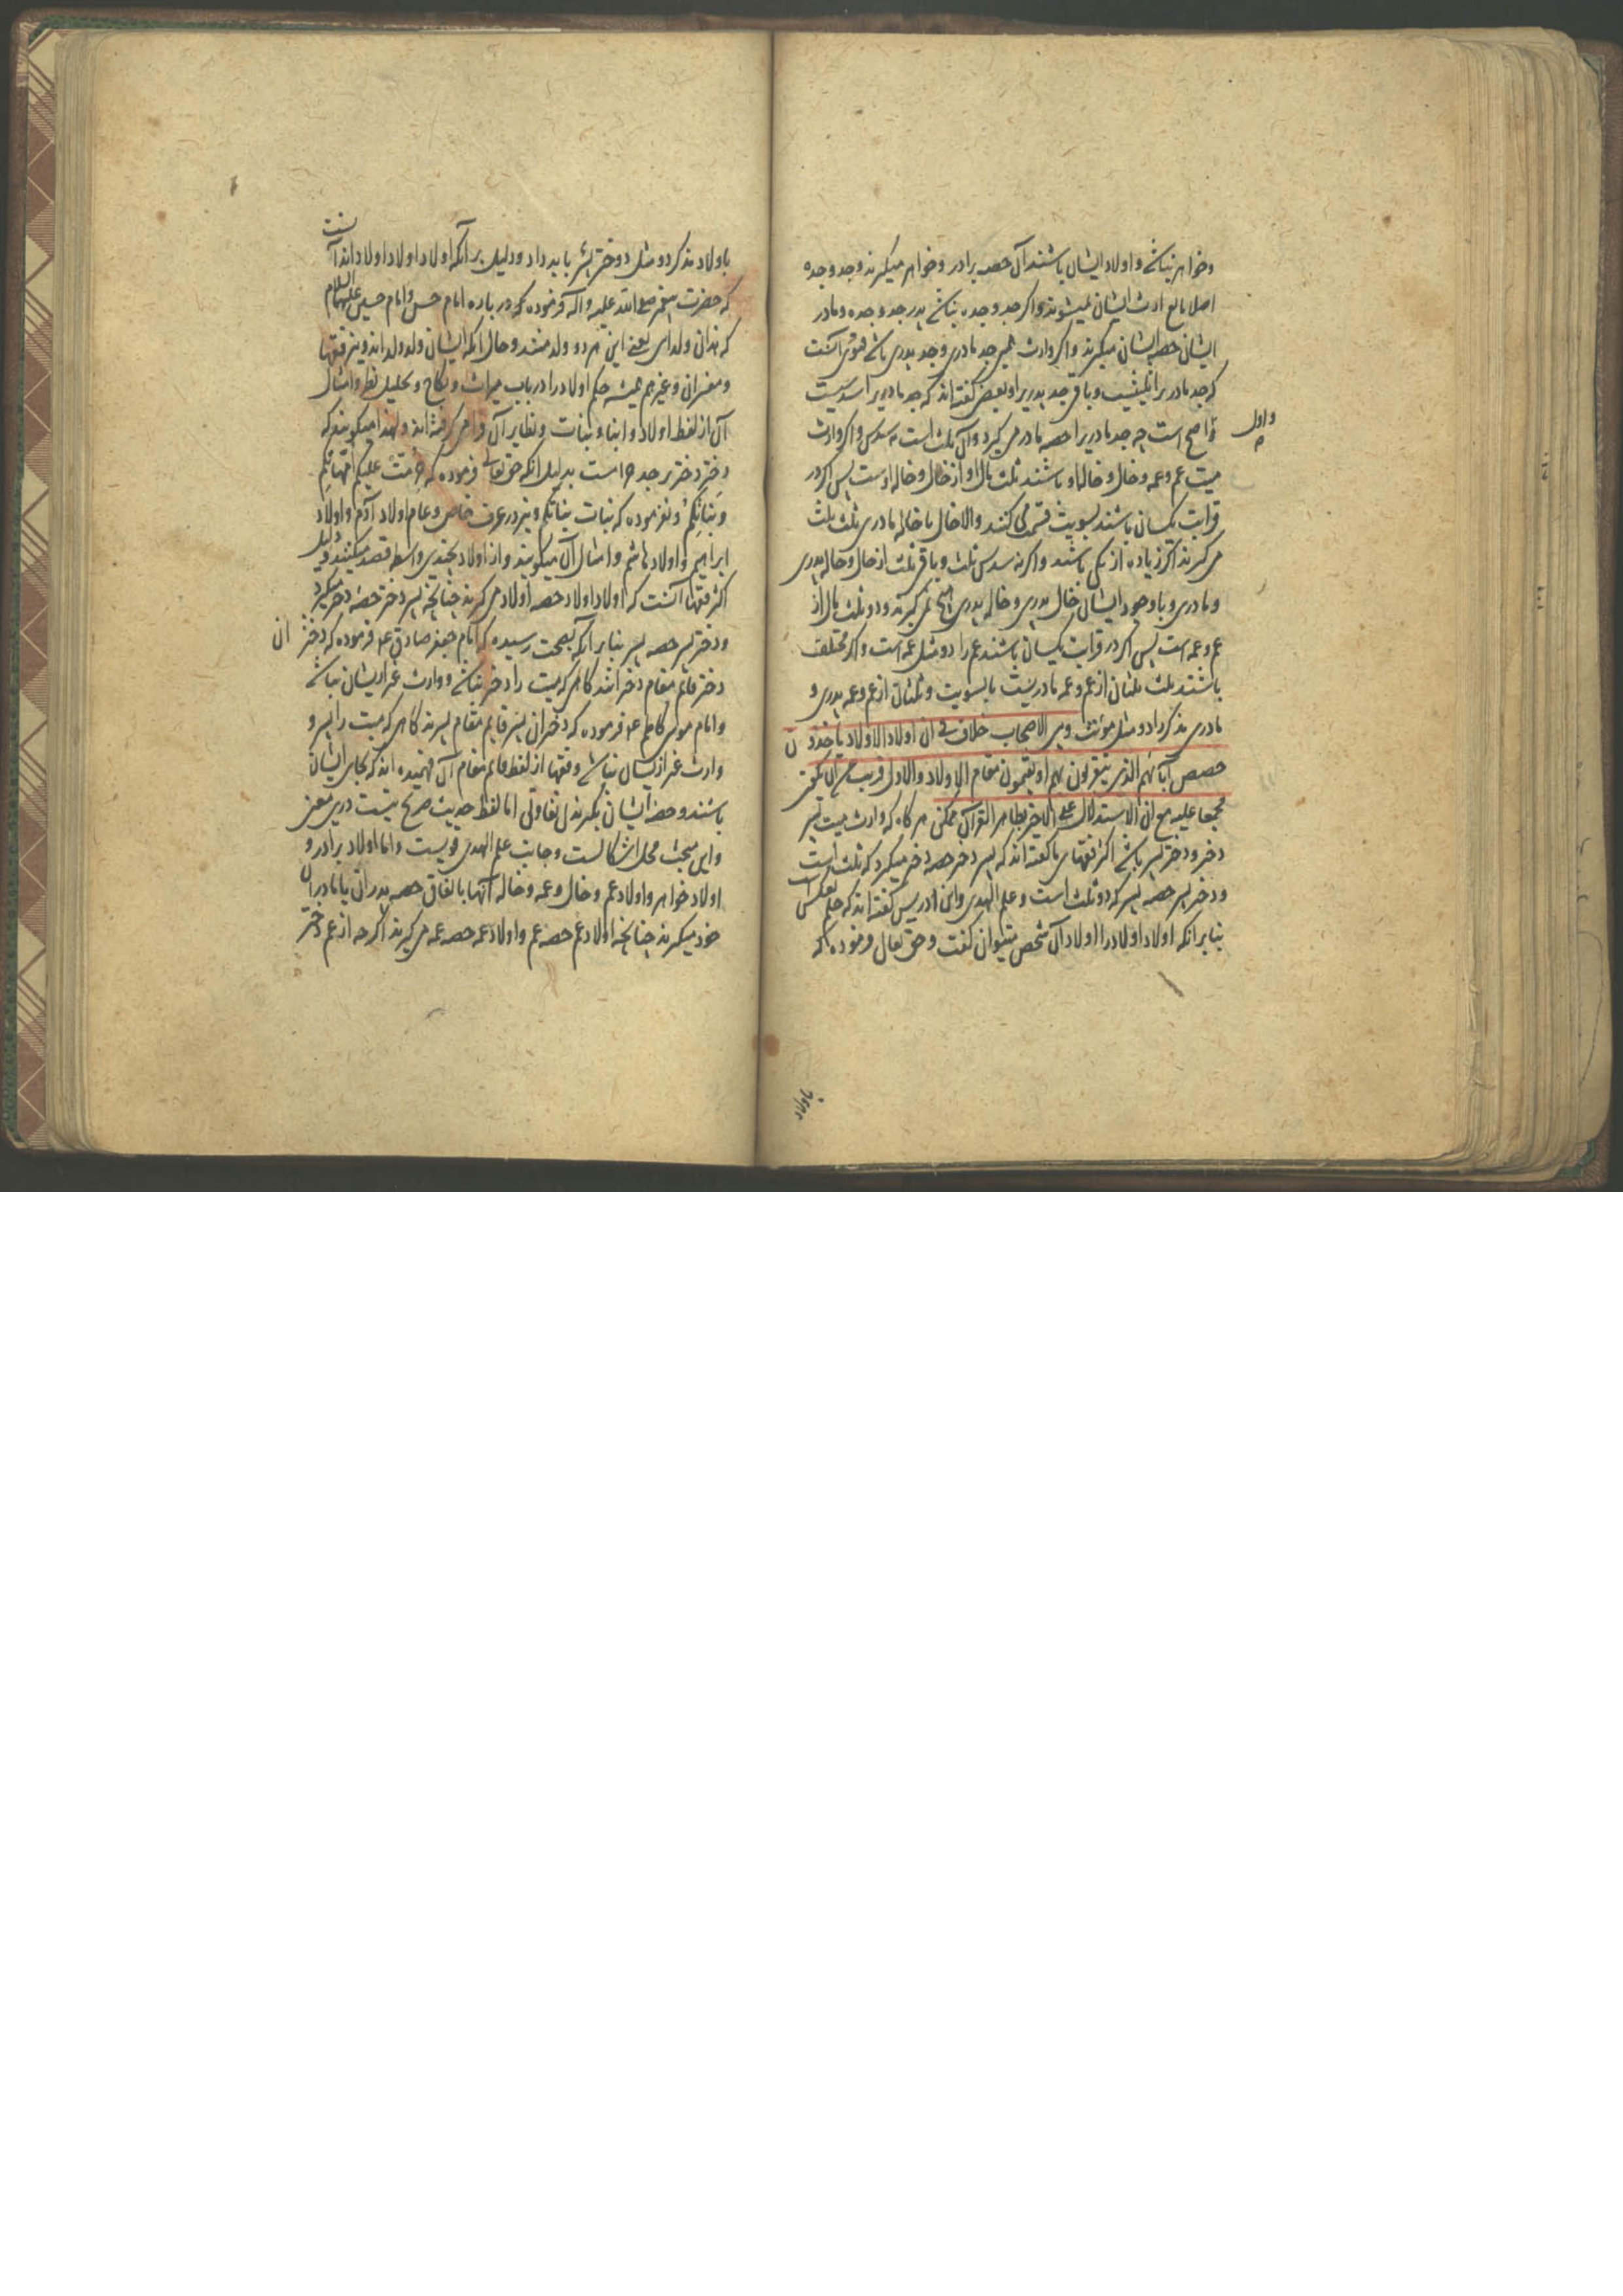 وخواهر نباشد و اولاد ایشان باشند آن حصه برادر و خواهر میگیرند و جد و جده
اصلا مانع ارث ایشان نمیشوند و اگر جد و جده نباشد پدر جد و جده و مادر
ایشان حصه ایشان میگیرند و اگر وارث همین جد مادری و جد پدری باشد فتوی آنست
که جد مادریرا ثلثیست و باقی جد پدریرا و بعضی گفته‌اند که جد مادریرا سدسیست
و اول
واضح است چه جد مادریرا حصه مادر می‌گیرد و آن ثلث است نه سدس و اگر وارث
میت عم و عمه و خال و خاله او باشند ثلث مال او از خال و خاله اوست پس اگر در
قرابت یکسان باشند بسویت قسمت می کنند و الا خال یا خاله مادری ثلث ثلث
می گیرند اگر زیاده از یکی باشند و اگر نه سدس ثلث و باقی ثلث از خال و خاله پدری
و مادری و با وجود ایشان خال پدری و خاله پدری هیچ نمی گیرند و دو ثلث مال از
عم و عمه است پس اگر در قرابت یکسان باشند عم را دو مثل عمه است و اگر مختلف
باشند ثلث ثلثان از عم و عمه مادریست بالسویت و ثلثان از عم و عمه پدری و
مادری مذکر را دو مثل مؤنث وبین الاصحاب خلاف فی ان اولاد الاولاد یاخذون
حصص آبائهم الذی یتقربون بهم او یقیمون مقام الاولاد والاول قریب من ان یکون
مجمعا علیه مع ان الاستدلال علی الاخیر بظاهر القرآن ممکن هر گاه که وارث میت پسر
دختر و دختر پسر باشد اکثر فقهای ما گفته‌اند که پسر دختر حصه دختر میگیرد که ثلث است
و دختر پسر حصه پسر که دو ثلث است و علم الهدی و ابن ادریس گفته‌اند که حکم بعکس است
بنا بر آنکه اولاد اولاد را اولاد آن شخص میتوان گفت و حق تعالی فرموده که
باولاد
باولاد مذکر دو مثل دختر باید داد و دلیل بر آنکه اولاد اولاد اولاداند آنست
که حضرت پیغمبر صلی الله علیه و آله فرموده که در باره امام حسن و امام حسین علیهما السلام
که هذان ولدای یعنی این هر دو ولد منند و حال آنکه ایشان ولد ولد اند و نیز فقها
و مفسران و غیرهم همیشه حکم اولاد را در باب میراث و نکاح و تحلیل نظر و امثال
آن از لفظ اولاد و ابناء و بنات و نظایر آن فرا می گرفته‌اند و لهذا میگویند که
دختر دختر بر جد حرامست بدلیل آنکه حق تعالی فرموده که حرمت علیکم امهاتکم
و بناتکم و نفرموده که بنات بناتکم و نیز در عرف خاص و عام اولاد آدم و اولاد
ابراهیم و اولاد هاشم و امثال آن میگویند و از اولاد بچندین واسطه قصد میکنند و دلیل
اکثر فقها آنست که اولاد اولاد حصه اولاد می گیرند چنانچه پسر دختر حصه دختر میگیرد
و دختر پسر حصه پسر بنا بر آنکه بصحت رسیده که امام جعفر صادق ع فرموده که دختران
دختر قایم مقام دختر اند گاهی که میت را دختر نباشد و وارث غیر ازیشان نباشد
و امام موسی کاظم ع فرموده که دختران پسر قایم مقام پسرند گاهی که میت را پسر و
وارث غیر ازیشان نباشد و فقها از لفظ قایم مقام آن فهمیده‌اند که بجای ایشان
باشند و حصه ایشان بگیرند بی تفاوتی اما لفظ حدیث صریح نیست درین معنی
و این مبحث محل اشکالست و جانب علم الهدی قویست و اما اولاد برادر و
اولاد خواهر و اولاد عم و خال و عمه و خاله آنها باتفاق حصه پدران یا مادران
خود میگیرند چنانچه اولاد عم حصه عم و اولاد عمه حصه عمه می گیرند اگر چه از عم دختر